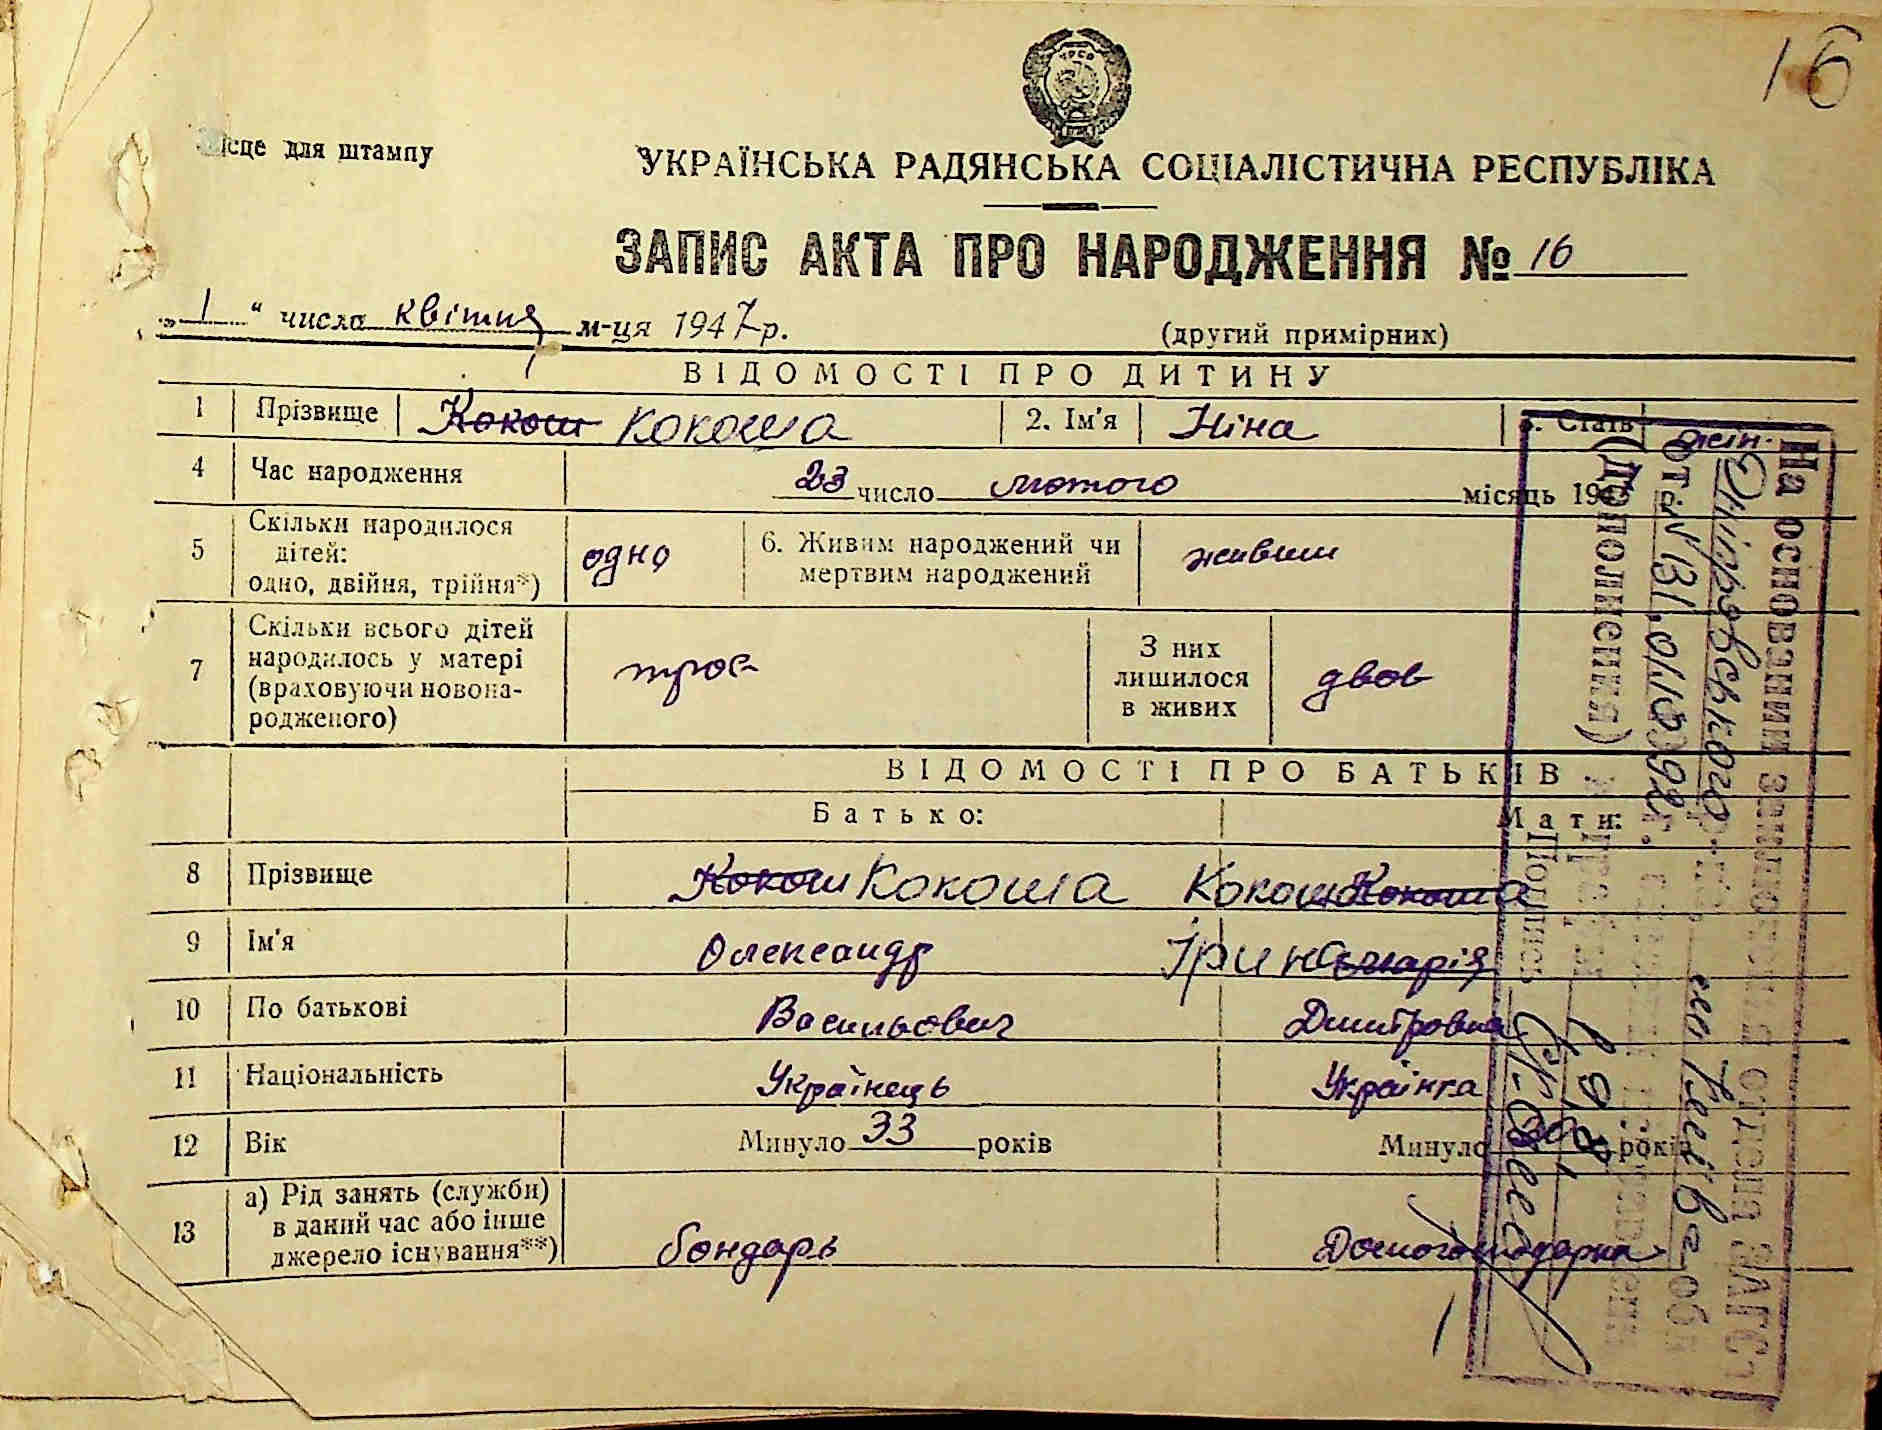 16
місце для штампу
УКРАЇНСЬКА РАДЯНСЬКА СОЦІАЛІСТИЧНА РЕСПУБЛІКА
ЗАПИС АКТА ПРО НАРОДЖЕННЯ № 16
„ 1 “ числа квітня м-ця 1947 р.
(другий примірник)
ВІДОМОСТІ ПРО ДИТИНУ
1 Прізвище Кокош Кокоша 2. Ім'я Ніна 3. Стать жін.
4 Час народження 23 число лютого місяць 194
5 Скільки народилося дітей: одно, двійня, трійня*) одно 6. Живим народжений чи мертвим народжений живим
7 Скільки всього дітей народилось у матері (враховуючи новонародженого) троє З них лишилося в живих двоє
ВІДОМОСТІ ПРО БАТЬКІВ
Батько: Мати:
8 Прізвище Кокош Кокоша Кокоша Кокоша
9 Ім'я Олександр Ірина Марія
10 По батькові Васильович Дмитровна
11 Національність Українець Українка
12 Вік Минуло 33 років Минуло років
13 а) Рід занять (служби) в даний час або інше джерело існування**) бондарь Домогосподарка
На основании заключения отдела ЗАГС
Дніпровського
от № 131
(дополнения)
Подпись